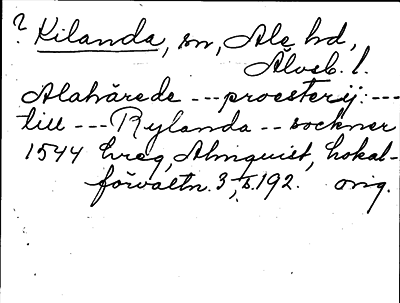 ? Kilanda, sn, Ale hd,
Älvsb. l.
Alahärede --- proesterij: ---
till --- Rylanda -- sockner
1544 Lreg, Almquist, Lokal-
förvaltn. 3, s. 192. orig.